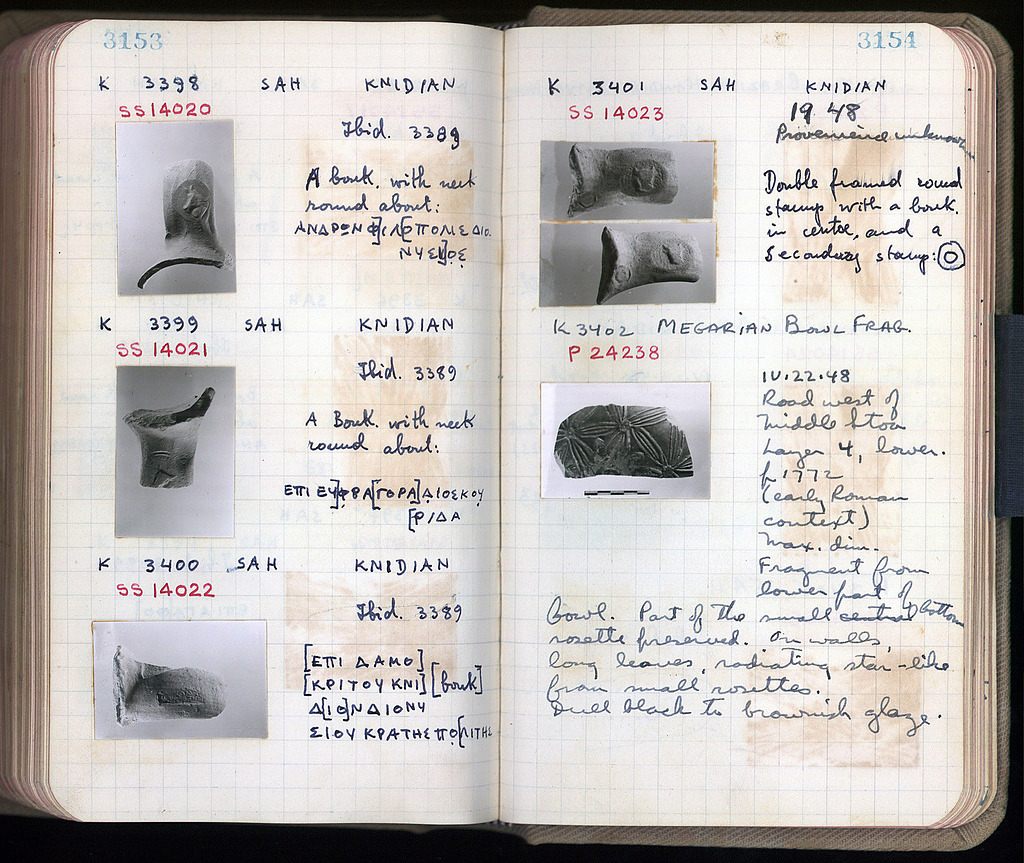 3153
K 3398 SAH KNIDIAN
SS 14020
Ibid. 3389
A bouk. with neck
round about:
ΑΝΔΡΩΝ Φ]ΙΛ[ΟΠΟΛΙΣ ΔΙΟ
ΝΥΣΙ]ΟΣ
K 3399 SAH KNIDIAN
SS 14021
Ibid. 3389
A Bouk. with neck
round about:
ΕΠΙ ΕΥ]ΦΡΑ[ΓΟΡΑ] ΔΙΟΣΚΟΥ
[ΡΙΔΑ
K 3400 SAH KNIDIAN
SS 14022
Ibid. 3389
[ΕΠΙ ΔΑΜΟ]
[ΚΡΙΤΟΥ ΚΝΙ] [bouk]
Δ[ΙΟ]Ν ΔΙΟΝΥ
ΣΙΟΥ ΚΡΑΤΗΣ ΠΟ[ΛΙΤΗΣ
3154
K 3401 SAH KNIDIAN
SS 14023
19.48
Provenience unknown
Double framed round
stamp with a bouk.
in centre, and a
Secondary stamp:
K 3402 MEGARIAN BOWL FRAG.
P 24238
IV.22.48
Road west of
Middle Stoa
Layer 4, lower.
(early Roman
context)
Max. dim.
Fragment from
lower part of
bowl. Part of the small central bottom
rosette preserved. On walls,
long leaves, radiating star-like
from small rosettes.
Dull black to brownish glaze.